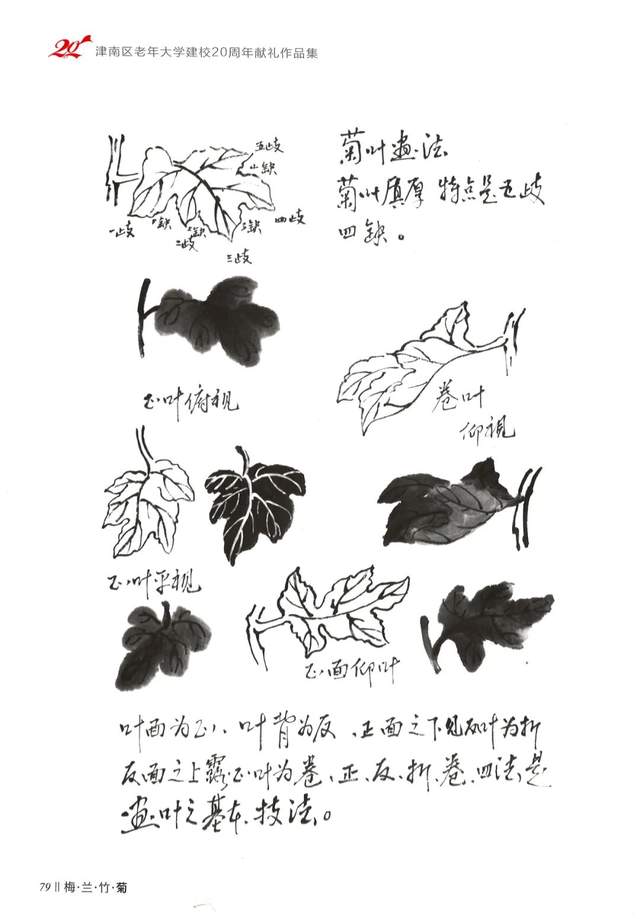 20
津南区老年大学建校20周年献礼作品集
菊叶画法
菊叶厚 特点是五歧
四缺。
五歧
四歧
一歧
二歧
三歧
正叶俯视
卷叶
仰视
正叶平视
正面仰叶
叶面为正、叶背为反、正面之下见反叶为折
反面之上露正叶为卷、正、反、折、卷、四法是
画叶之基本技法。
79 || 梅·兰·竹·菊